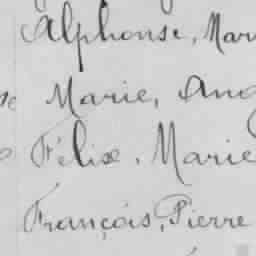 Alphonse, Mar
Marie, Ang
Félix, Marie
François, Pierre